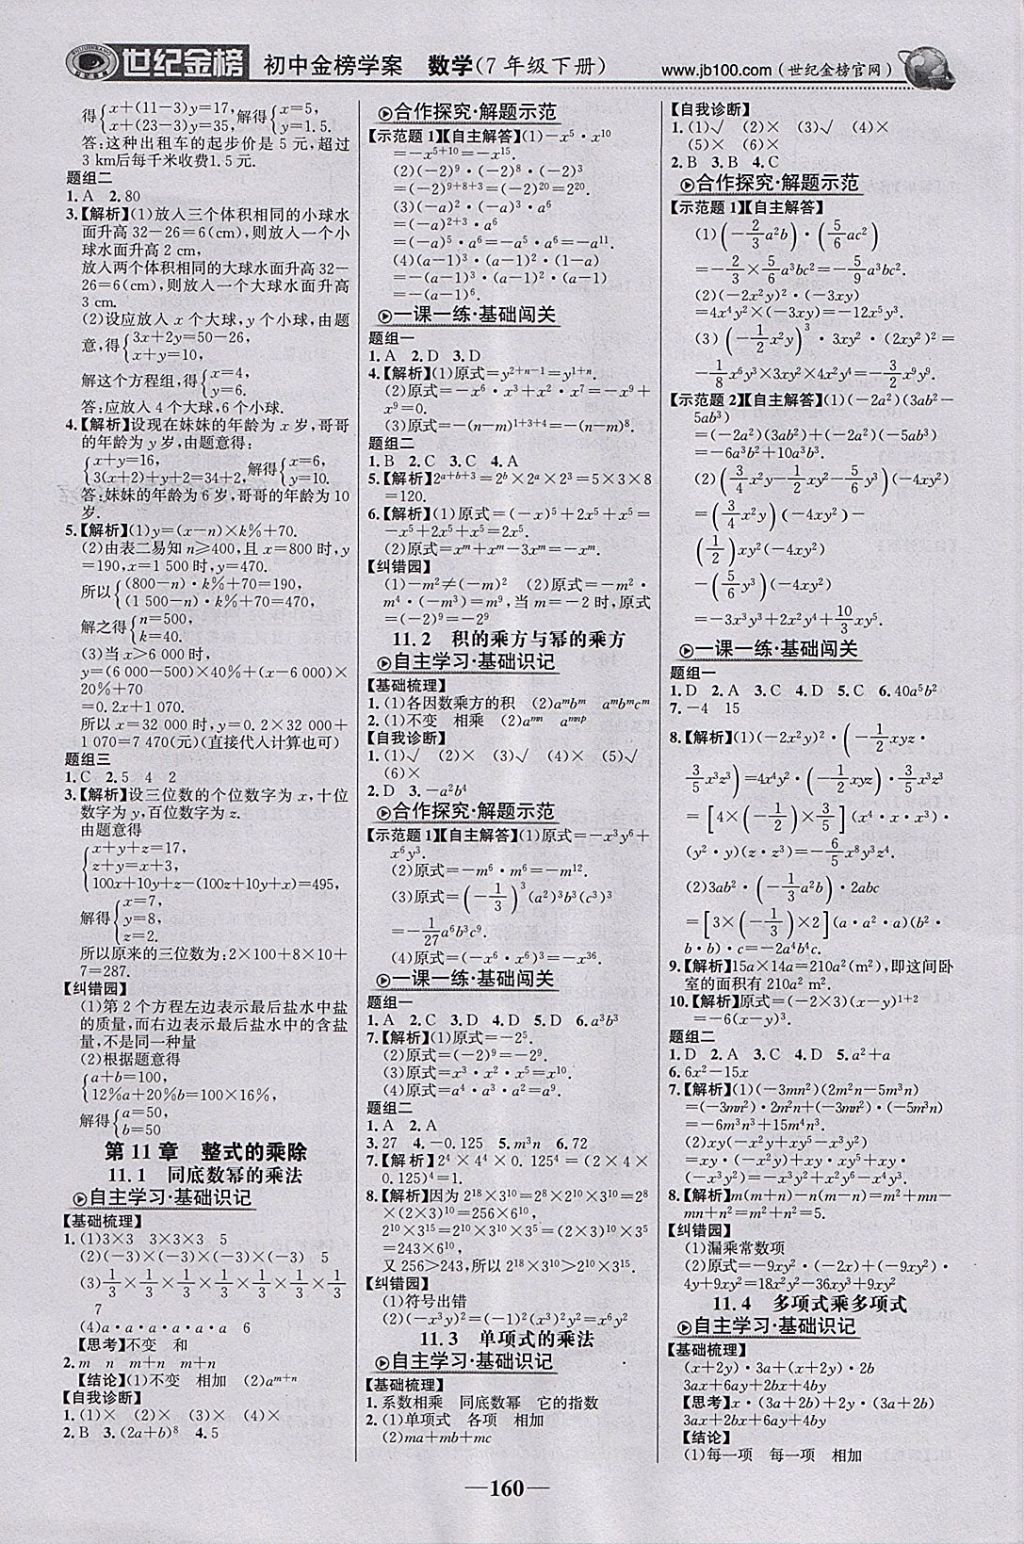 世纪金榜 初中金榜学案 数学(7年级下册) www.jb100.com(世纪金榜官网)
得{x+(11-3)y=17, x+(23-3)y=35, 解得{x=5, y=1.5.
答:这种出租车的起步价是 5 元,超过
3 km后每千米收费1.5 元.
题组二
1.A 2.80
3.【解析】(1)放入三个体积相同的小球水
面升高 32-26=6(cm),则放入一个小
球水面升高 2 cm,
放入两个体积相同的大球水面升高32-
26=6(cm),则放入一个大球水面升高
3 cm.
(2)设应放入 x 个大球,y 个小球,由题
意,得{3x+2y=50-26, x+y=10,
解这个方程组,得{x=4, y=6.
答:应放入 4 个大球,6 个小球.
4.【解析】设现在妹妹的年龄为 x 岁,哥哥
的年龄为 y 岁,由题意得:
{x+y=16, 3(x+2)+y+2=34+2, 解得{x=6, y=10.
答:妹妹的年龄为 6 岁,哥哥的年龄为 10
岁.
5.【解析】(1)y=(x-n)×k%+70.
(2)由表二易知 n≥400,且 x=800 时,y
=190,x=1 500 时,y=470.
所以{(800-n)·k%+70=190, (1 500-n)·k%+70=470,
解之得{n=500, k=40.
(3)当 x>6 000 时,
y=(6 000-500)×40%+(x-6 000)×
20%+70
=0.2x+1 070,
所以 x=32 000 时,y=0.2×32 000+
1 070=7 470(元)(直接代入计算也可)
题组三
1.C 2.5 4 2
3.【解析】设三位数的个位数字为 x,十位
数字为 y,百位数字为 z.
由题意得
{x+y+z=17, z+y=x+3, 100x+10y+z-(100z+10y+x)=495,
解得{x=7, y=8, z=2.
所以原来的三位数为:2×100+8×10+
7=287.
【纠错园】
(1)第 2 个方程左边表示最后盐水中盐
的质量,而右边表示最后盐水中的含盐
量,不是同一种量
(2)根据题意得
{a+b=100, 12%a+20%b=100×16%,
解得{a=50, b=50
第 11 章 整式的乘除
11.1 同底数幂的乘法
自主学习·基础识记
【基础梳理】
1.(1)3×3 3×3×3 5
(2)(-3)×(-3)×(-3)×(-3) 5
(3)1/3×1/3×1/3×1/3×1/3×1/3×1/3
7
(4)a·a·a·a·a 6
【思考】不变 和
2.m n m+n m+n
【结论】(1)不变 相加 (2)aᵐ⁺ⁿ
【自我诊断】
1.(1)× (2)× (3)× (4)×
2.B 3.(2a+b)⁸ 4.5
合作探究·解题示范
【示范题 1】【自主解答】(1)-x⁵·x¹⁰
=-x⁵⁺¹⁰=-x¹⁵.
(2)(-2)⁹·(-2)⁸·(-2)³
=(-2)⁹⁺⁸⁺³=(-2)²⁰=2²⁰.
(3)(-a)²·(-a)³·a⁶
=(-a)²⁺³·a⁶
=(-a)⁵·a⁶=-a⁵·a⁶=-a¹¹.
(4)(a-1)³·(a-1)²·(1-a)
=-(a-1)³·(a-1)²·(a-1)
=-(a-1)⁶.
一课一练·基础闯关
题组一
1.A 2.D 3.D
4.【解析】(1)原式=y²⁺ⁿ⁻¹=y¹⁺ⁿ.
(2)原式=-x⁶·x³+x⁴·x⁵=-x⁹+
x⁹=0.
(3)原式=-(n-m)¹⁺³⁺⁴=-(n-m)⁸.
题组二
1.B 2.C 3.C 4.A
5.【解析】2ᵃ⁺ᵇ⁺³=2ᵇ×2ᵃ×2³=5×3×8
=120.
6.【解析】(1)原式=(-x)⁵+2x⁵+x⁵=
-x⁵+2x⁵+x⁵=2x⁵.
(2)原式=xᵐ+xᵐ-3xᵐ=-xᵐ.
【纠错园】
(1)-m²≠(-m)² (2)原式=-m²·
m⁴·(-m³)=m⁹,当 m=-2 时,原式
=(-2)⁹=-2⁹
11.2 积的乘方与幂的乘方
自主学习·基础识记
【基础梳理】
1.(1)各因数乘方的积 (2)aᵐbᵐ aᵐbᵐcᵐ
2.(1)不变 相乘 (2)aᵐⁿ aᵐⁿᵖ
【自我诊断】
1.(1)√ (2)× (3)√ (4)× (5)√
(6)×
2.D 3.-a²b⁴
合作探究·解题示范
【示范题 1】【自主解答】(1)原式=-x³y⁶+
x⁶y³.
(2)原式=-m⁶·m⁶=-m¹².
(3)原式=(-1/3)³(a²)³b³(c³)³
=-1/27a⁶b³c⁹.
(4)原式=(-x⁶·x⁶)³=-x³⁶.
一课一练·基础闯关
题组一
1.A 2.C 3.D 4.D 5.D 6.a³b³
7.【解析】(1)原式=-2⁵.
(2)原式=(-2)⁹=-2⁹.
(3)原式=x³·x²·x⁵=x¹⁰.
(4)原式=a⁴·a³·a²=a⁹.
题组二
1.A 2.A
3.27 4.-0.125 5.m³n 6.72
7.【解析】2⁴×4⁴×0.125⁴=(2×4×
0.125)⁴=1.
8.【解析】因为 2¹⁸×3¹⁰=2⁸×2¹⁰×3¹⁰=2⁸
×(2×3)¹⁰=256×6¹⁰,
2¹⁰×3¹⁵=2¹⁰×3¹⁰×3⁵=(2×3)¹⁰×3⁵
=243×6¹⁰,
又 256>243,所以 2¹⁸×3¹⁰>2¹⁰×3¹⁵.
【纠错园】
(1)符号出错
(2)(-x³y)²=(-1)²(x³)²y²=x⁶y²
11.3 单项式的乘法
自主学习·基础识记
【基础梳理】
1.系数相乘 同底数幂 它的指数
2.(1)单项式 各项 相加
(2)ma+mb+mc
【自我诊断】
1.(1)√ (2)× (3)√ (4)×
(5)× (6)×
2.B 3.B 4.C
合作探究·解题示范
【示范题 1】【自主解答】
(1)(-2/3a²b)·(5/6ac²)
=-2/3×5/6a³bc²=-5/9a³bc².
(2)(-2x²y)²·(-3xy)
=4x⁴y²×(-3xy)=-12x⁵y³.
(3)(-1/2x²y)³·3xy²·(2xy²)²=
-1/8x⁶y³×3xy²×4x²y⁴=-3/2x⁹y⁹.
【示范题 2】【自主解答】(1)(-2a²)(3ab²-
5ab³)
=(-2a²)(3ab²)+(-2a²)(-5ab³)
=-6a³b²+10a³b³.
(2)(3/4x²y-1/2xy²-5/6y³)(-4xy²)
=(3/4x²y)(-4xy²)-
(1/2)xy²(-4xy²)
-(5/6y³)(-4xy²)
=-3x³y³+2x²y⁴+10/3xy⁵.
一课一练·基础闯关
题组一
1.D 2.A 3.C 4.D 5.C 6.40a⁵b²
7.-4 15
8.【解析】(1)(-2x²y)²·(-1/2xyz·
3/5x³z³)=4x⁴y²(-1/2xyz)·3/5x³z³
=[4×(-1/2)×3/5](x⁴·x·x³)·
(y²·y)(z·z³)=-6/5x⁸y³z⁴.
(2)3ab²·(-1/3a²b)·2abc
=[3×(-1/3)×2](a·a²·a)(b²·
b·b)·c=-2a⁴b⁴c.
9.【解析】15a×14a=210a²(m²),即这间卧
室的面积有 210a² m².
10.【解析】原式=(-2×3)(x-y)¹⁺²
=-6(x-y)³.
题组二
1.D 2.A 3.C 4.D 5.a²+a
6.6x²-15x
7.【解析】(1)(-3mn²)(2m²n-5m³n)
=(-3mn²)·2m²n+(-3mn²)·(-5m³n)
=-6m³n³+15m⁴n³.
(2)xy(-x²y+x³y-x³y²)
=xy·(-x²y)+xy·x³y+xy·
(-x³y²)=-x³y²+x⁴y²-x⁴y³.
8.【解析】m(m+n)-n(m-n)=m²+mn-
mn+n²=m²+n²=5.
【纠错园】
(1)漏乘常数项
(2)原式=-9xy²·(-2x)+(-9xy²)·
4y+9xy²=18x²y²-36xy³+9xy²
11.4 多项式乘多项式
自主学习·基础识记
【基础梳理】
(x+2y)·3a+(x+2y)·2b
3ax+6ay+2bx+4by
【思考】x·(3a+2b)+2y·(3a+2b)
3ax+2bx+6ay+4by
【结论】
(1)每一项 每一项 相加
—160—